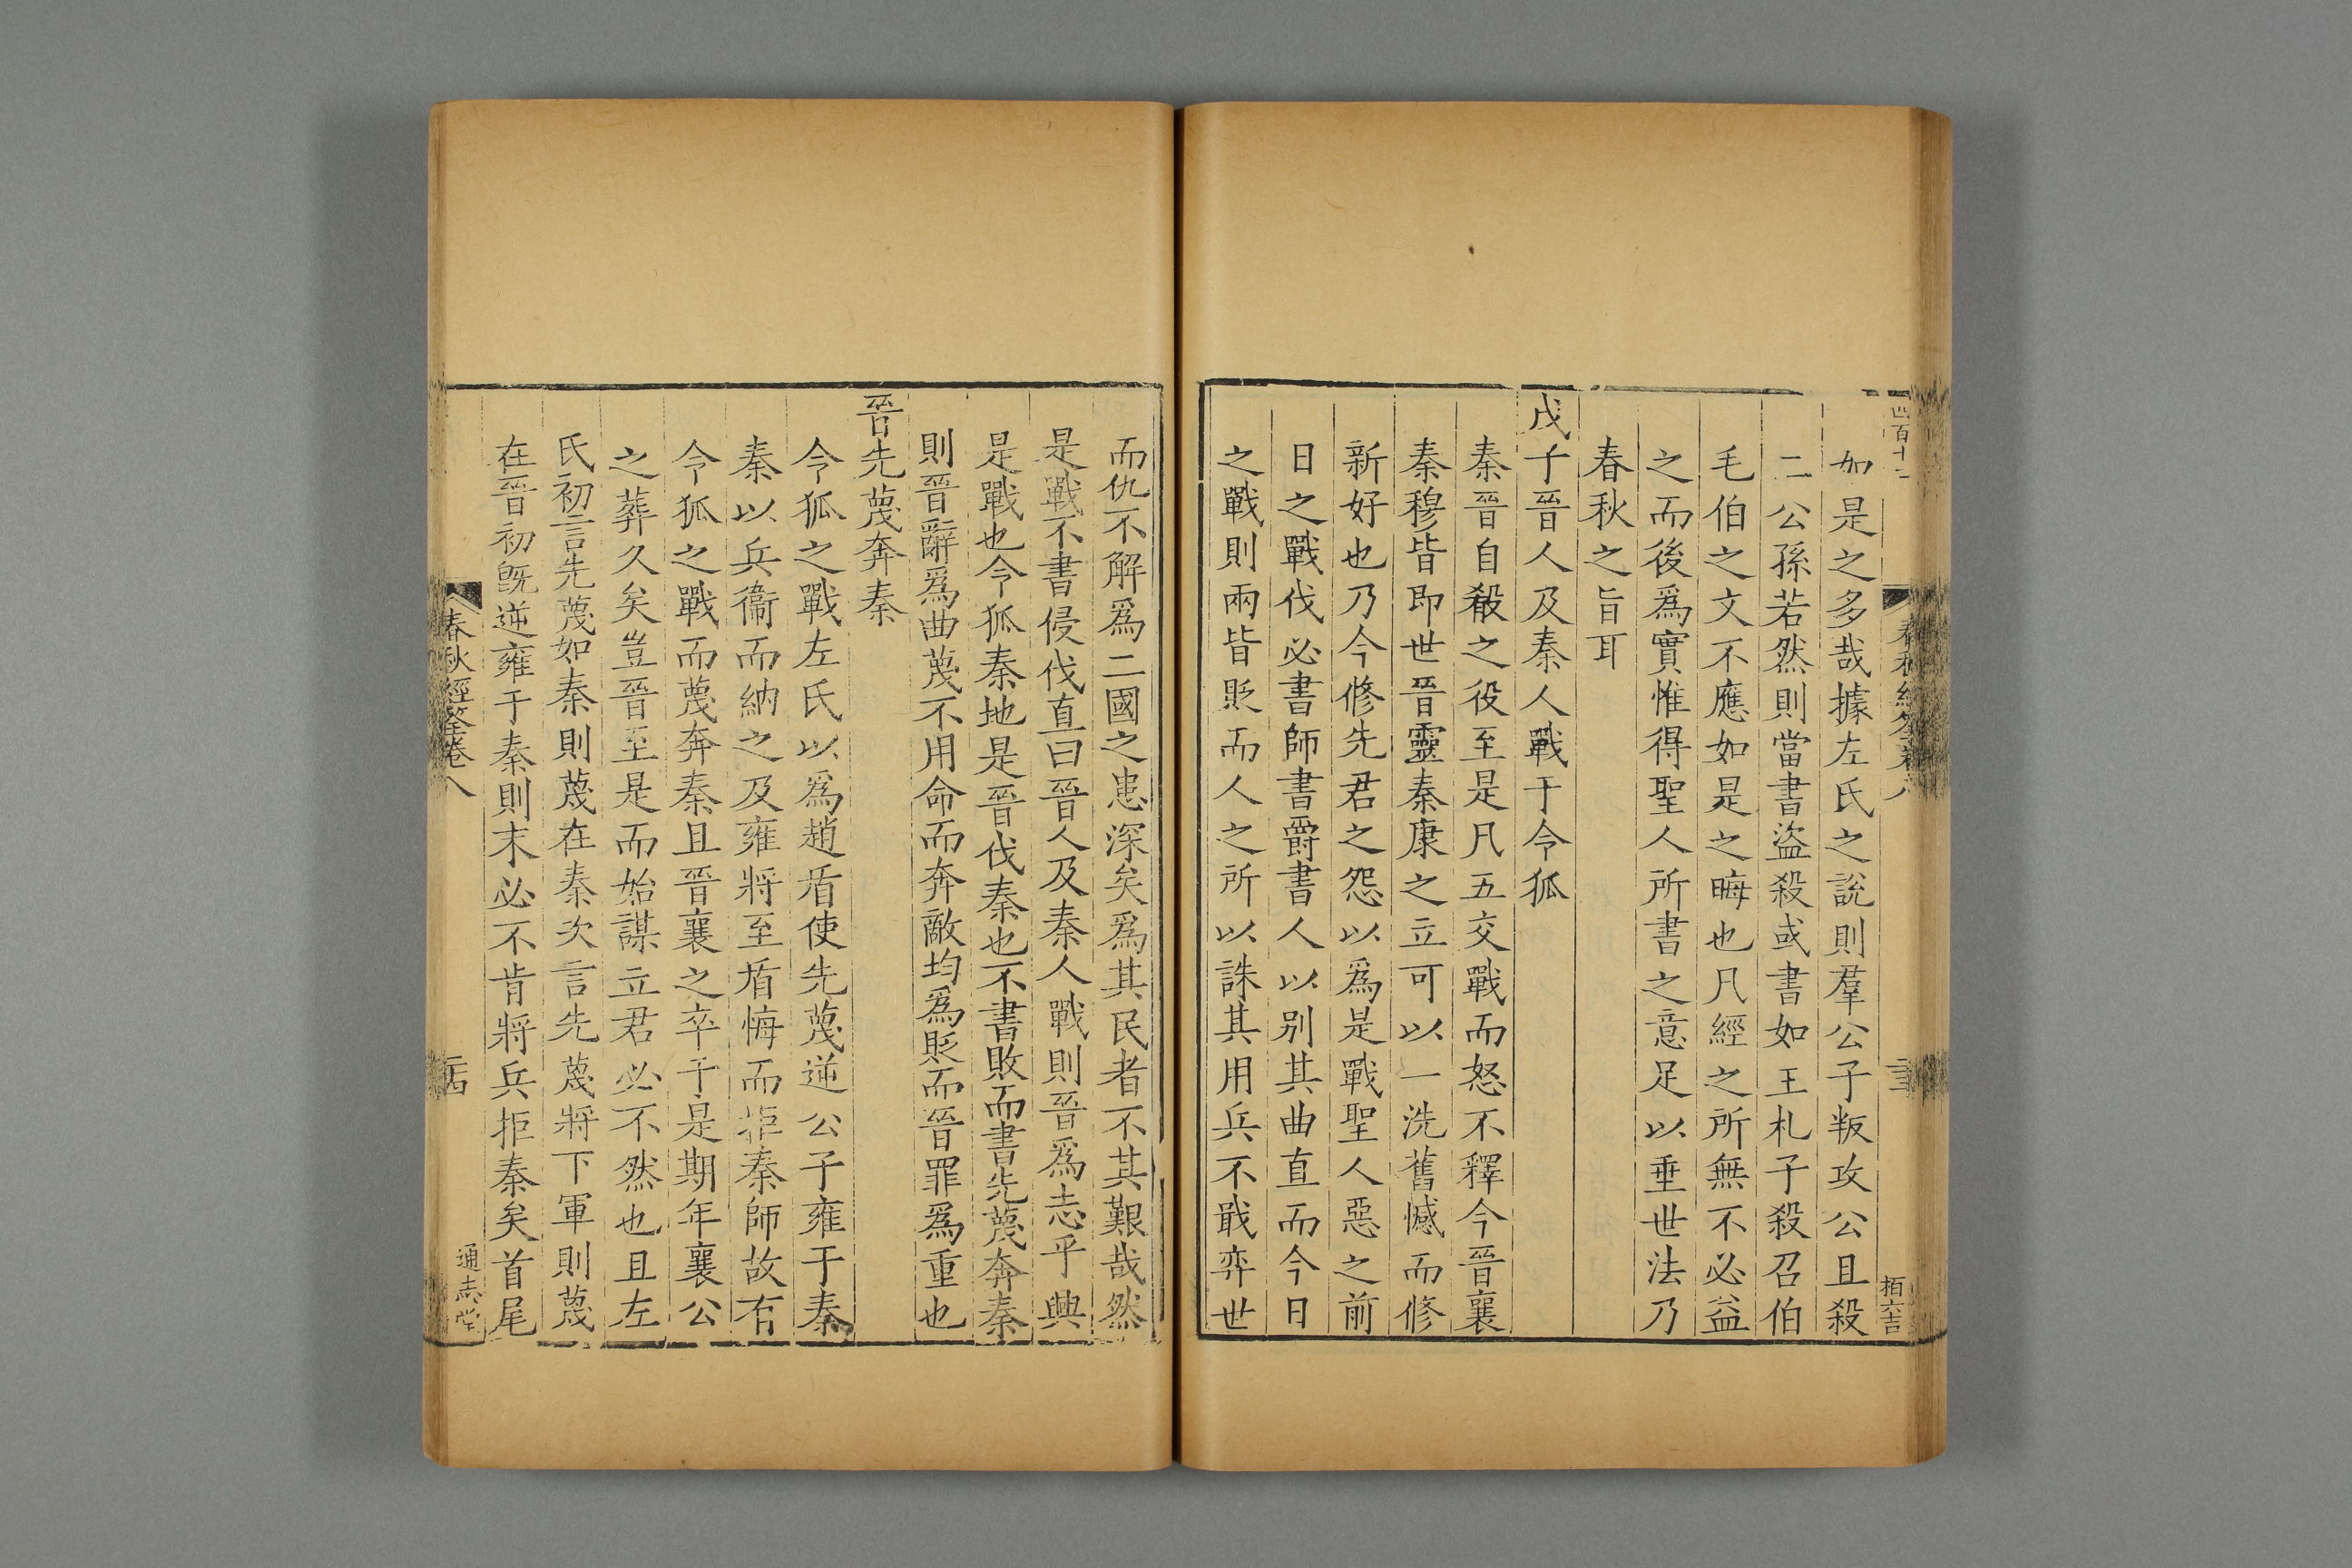 春秋經筌卷八
如是之多哉據左氏之說則羣公子叛攻公且殺
二公孫若然則當書盜殺或書如王札子殺召伯
毛伯之文不應如是之晦也凡經之所無不必益
之而後爲實惟得聖人所書之意足以垂世法乃
春秋之旨耳
戊子晉人及秦人戰于令狐
秦晉自殽之役至是凡五交戰而怒不釋今晉襄
秦穆皆即世晉靈秦康之立可以一洗舊憾而修
新好也乃今修先君之怨以爲是戰聖人惡之前
日之戰伐必書師書爵書人以别其曲直而今日
之戰則兩皆貶而人之所以誅其用兵不戢弈世
而仇不解爲二國之患深矣爲其民者不其艱哉然
是戰不書侵伐直曰晉人及秦人戰則晉爲志乎興
是戰也令狐秦地是晉伐秦也不書敗而書先蔑奔秦
則晉辭爲曲蔑不用命而奔敵均爲貶而晉罪爲重也
晉先蔑奔秦
令狐之戰左氏以爲趙盾使先蔑逆公子雍于秦
秦以兵衞而納之及雍將至盾悔而拒秦師故有
令狐之戰而蔑奔秦且晉襄之卒于是期年襄公
之葬久矣豈晉至是而始謀立君必不然也且左
氏初言先蔑如秦則蔑在秦次言先蔑將下軍則蔑
在晉初旣逆雍于秦則末必不肯將兵拒秦矣首尾
春秋經筌卷八
二四
通志堂